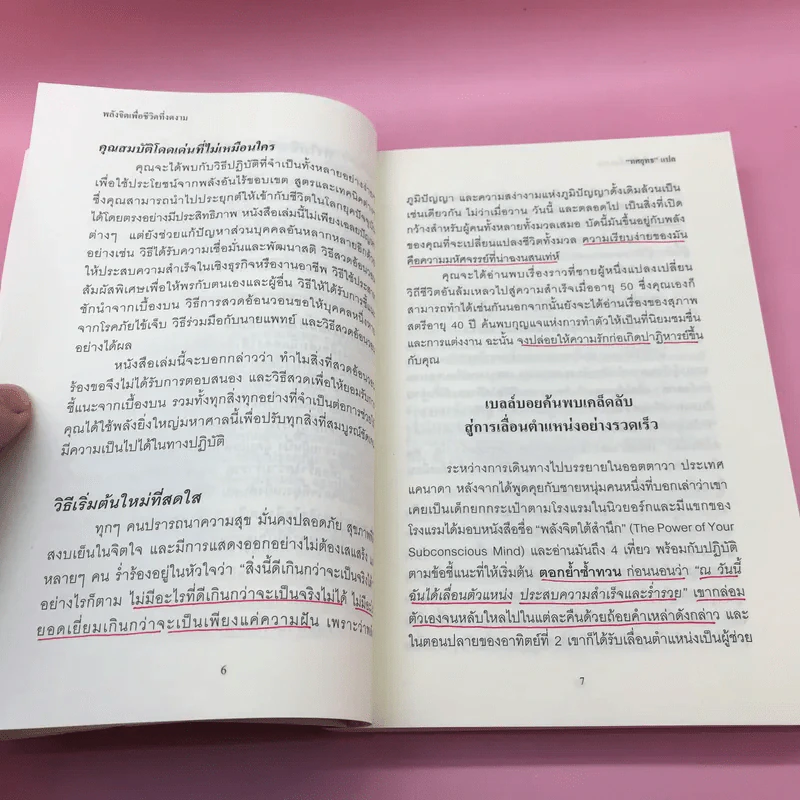 พลังจิตเพื่อชีวิตที่งดงาม
คุณสมบัติโดดเด่นที่ไม่เหมือนใคร
คุณจะได้พบกับวิธีปฏิบัติที่จำเป็นทั้งหลายอย่าง
เพื่อใช้ประโยชน์จากพลังอันไร้ขอบเขต สูตรและเทคนิค
ซึ่งคุณสามารถนำไปประยุกต์ให้เข้ากับชีวิตในโลกยุคปัจจุบัน
ได้โดยตรงอย่างมีประสิทธิภาพ หนังสือเล่มนี้ไม่เพียงเฉลย
ต่างๆ แต่ยังช่วยแก้ปัญหาส่วนบุคคลอันหลากหลาย
อย่างเช่น วิธีได้รับความเชื่อมั่นและพัฒนาสติ วิธีสวดอ้อนวอน
ให้ประสบความสำเร็จในเชิงธุรกิจหรืองานอาชีพ วิธีใช้
สัมผัสพิเศษเพื่อให้พรกับตนเองและผู้อื่น วิธีให้ได้รับการ
ชักนำจากเบื้องบน วิธีการสวดอ้อนวอนขอให้บุคคลหนึ่ง
จากโรคภัยไข้เจ็บ วิธีร่วมมือกับนายแพทย์ และวิธีสวด
อย่างได้ผล
หนังสือเล่มนี้จะบอกกล่าวว่า ทำไมสิ่งที่สวดอ้อนวอน
ร้องขอจึงไม่ได้รับการตอบสนอง และวิธีสวดเพื่อให้ยอมรับ
ชี้แนะจากเบื้องบน รวมทั้งทุกสิ่งทุกอย่างที่จำเป็นต่อการ
คุณได้ใช้พลังยิ่งใหญ่มหาศาลนี้เพื่อปรับทุกสิ่งที่สมบูรณ์
มีความเป็นไปได้ในทางปฏิบัติ
วิธีเริ่มต้นใหม่ที่สดใส
ทุกๆ คนปรารถนาความสุข มั่นคงปลอดภัย สุขภาพ
สงบเย็นในจิตใจ และมีการแสดงออกอย่างไม่ต้องเสแสร้ง
หลายๆ คน ร่ำร้องอยู่ในหัวใจว่า "สิ่งนี้ดีเกินกว่าจะเป็นจริงได้
อย่างไรก็ตาม ไม่มีอะไรที่ดีเกินกว่าจะเป็นจริงไม่ได้ ไม่มี
ยอดเยี่ยมเกินกว่าจะเป็นเพียงแค่ความฝัน เพราะว่า
6
"ทศยุทธ" แปล
ภูมิปัญญา และความสง่างามแห่งภูมิปัญญาดั้งเดิมล้วนเป็น
เช่นเดียวกัน ไม่ว่าเมื่อวาน วันนี้ และตลอดไป เป็นสิ่งที่เปิด
กว้างสำหรับผู้คนทั้งหลายทั้งมวลเสมอ บัดนี้มันขึ้นอยู่กับพลัง
ของคุณที่จะเปลี่ยนแปลงชีวิตทั้งมวล ความเรียบง่ายของมัน
คือความมหัศจรรย์ที่น่าฉงนสนเท่ห์
คุณจะได้อ่านพบเรื่องราวที่ชายผู้หนึ่งแปลงเปลี่ยน
วิถีชีวิตอันล้มเหลวไปสู่ความสำเร็จเมื่ออายุ 50 ซึ่งคุณเองก็
สามารถทำได้เช่นกันนอกจากนั้นยังจะได้อ่านเรื่องของสุภาพ
สตรีอายุ 40 ปี ค้นพบกุญแจแห่งการทำตัวให้เป็นที่นิยมชมชื่น
และการแต่งงาน ฉะนั้น จงปล่อยให้ความรักก่อเกิดปาฏิหารย์ขึ้น
กับคุณ
เบลล์บอยค้นพบเคล็ดลับ
สู่การเลื่อนตำแหน่งอย่างรวดเร็ว
ระหว่างการเดินทางไปบรรยายในออตตาวา ประเทศ
แคนาดา หลังจากได้พูดคุยกับชายหนุ่มคนหนึ่งที่บอกเล่าว่าเขา
เคยเป็นเด็กยกกระเป๋าตามโรงแรมในนิวยอร์กและมีแขกของ
โรงแรมได้มอบหนังสือชื่อ "พลังจิตใต้สำนึก" (The Power of Your
Subconscious Mind) และอ่านมันถึง 4 เที่ยว พร้อมกับปฏิบัติ
ตามข้อชี้แนะที่ให้เริ่มต้น ตอกย้ำซ้ำทวน ก่อนนอนว่า "ณ วันนี้
ฉันได้เลื่อนตัวแหน่ง ประสบความสำเร็จและร่ำรวย" เขากล่อม
ตัวเองจนหลับใหลไปในแต่ละคืนด้วยถ้อยคำเหล่าดังกล่าว และ
ในตอนปลายของอาทิตย์ที่ 2 เขาก็ได้รับเลื่อนตำแหน่งเป็นผู้ช่วย
7